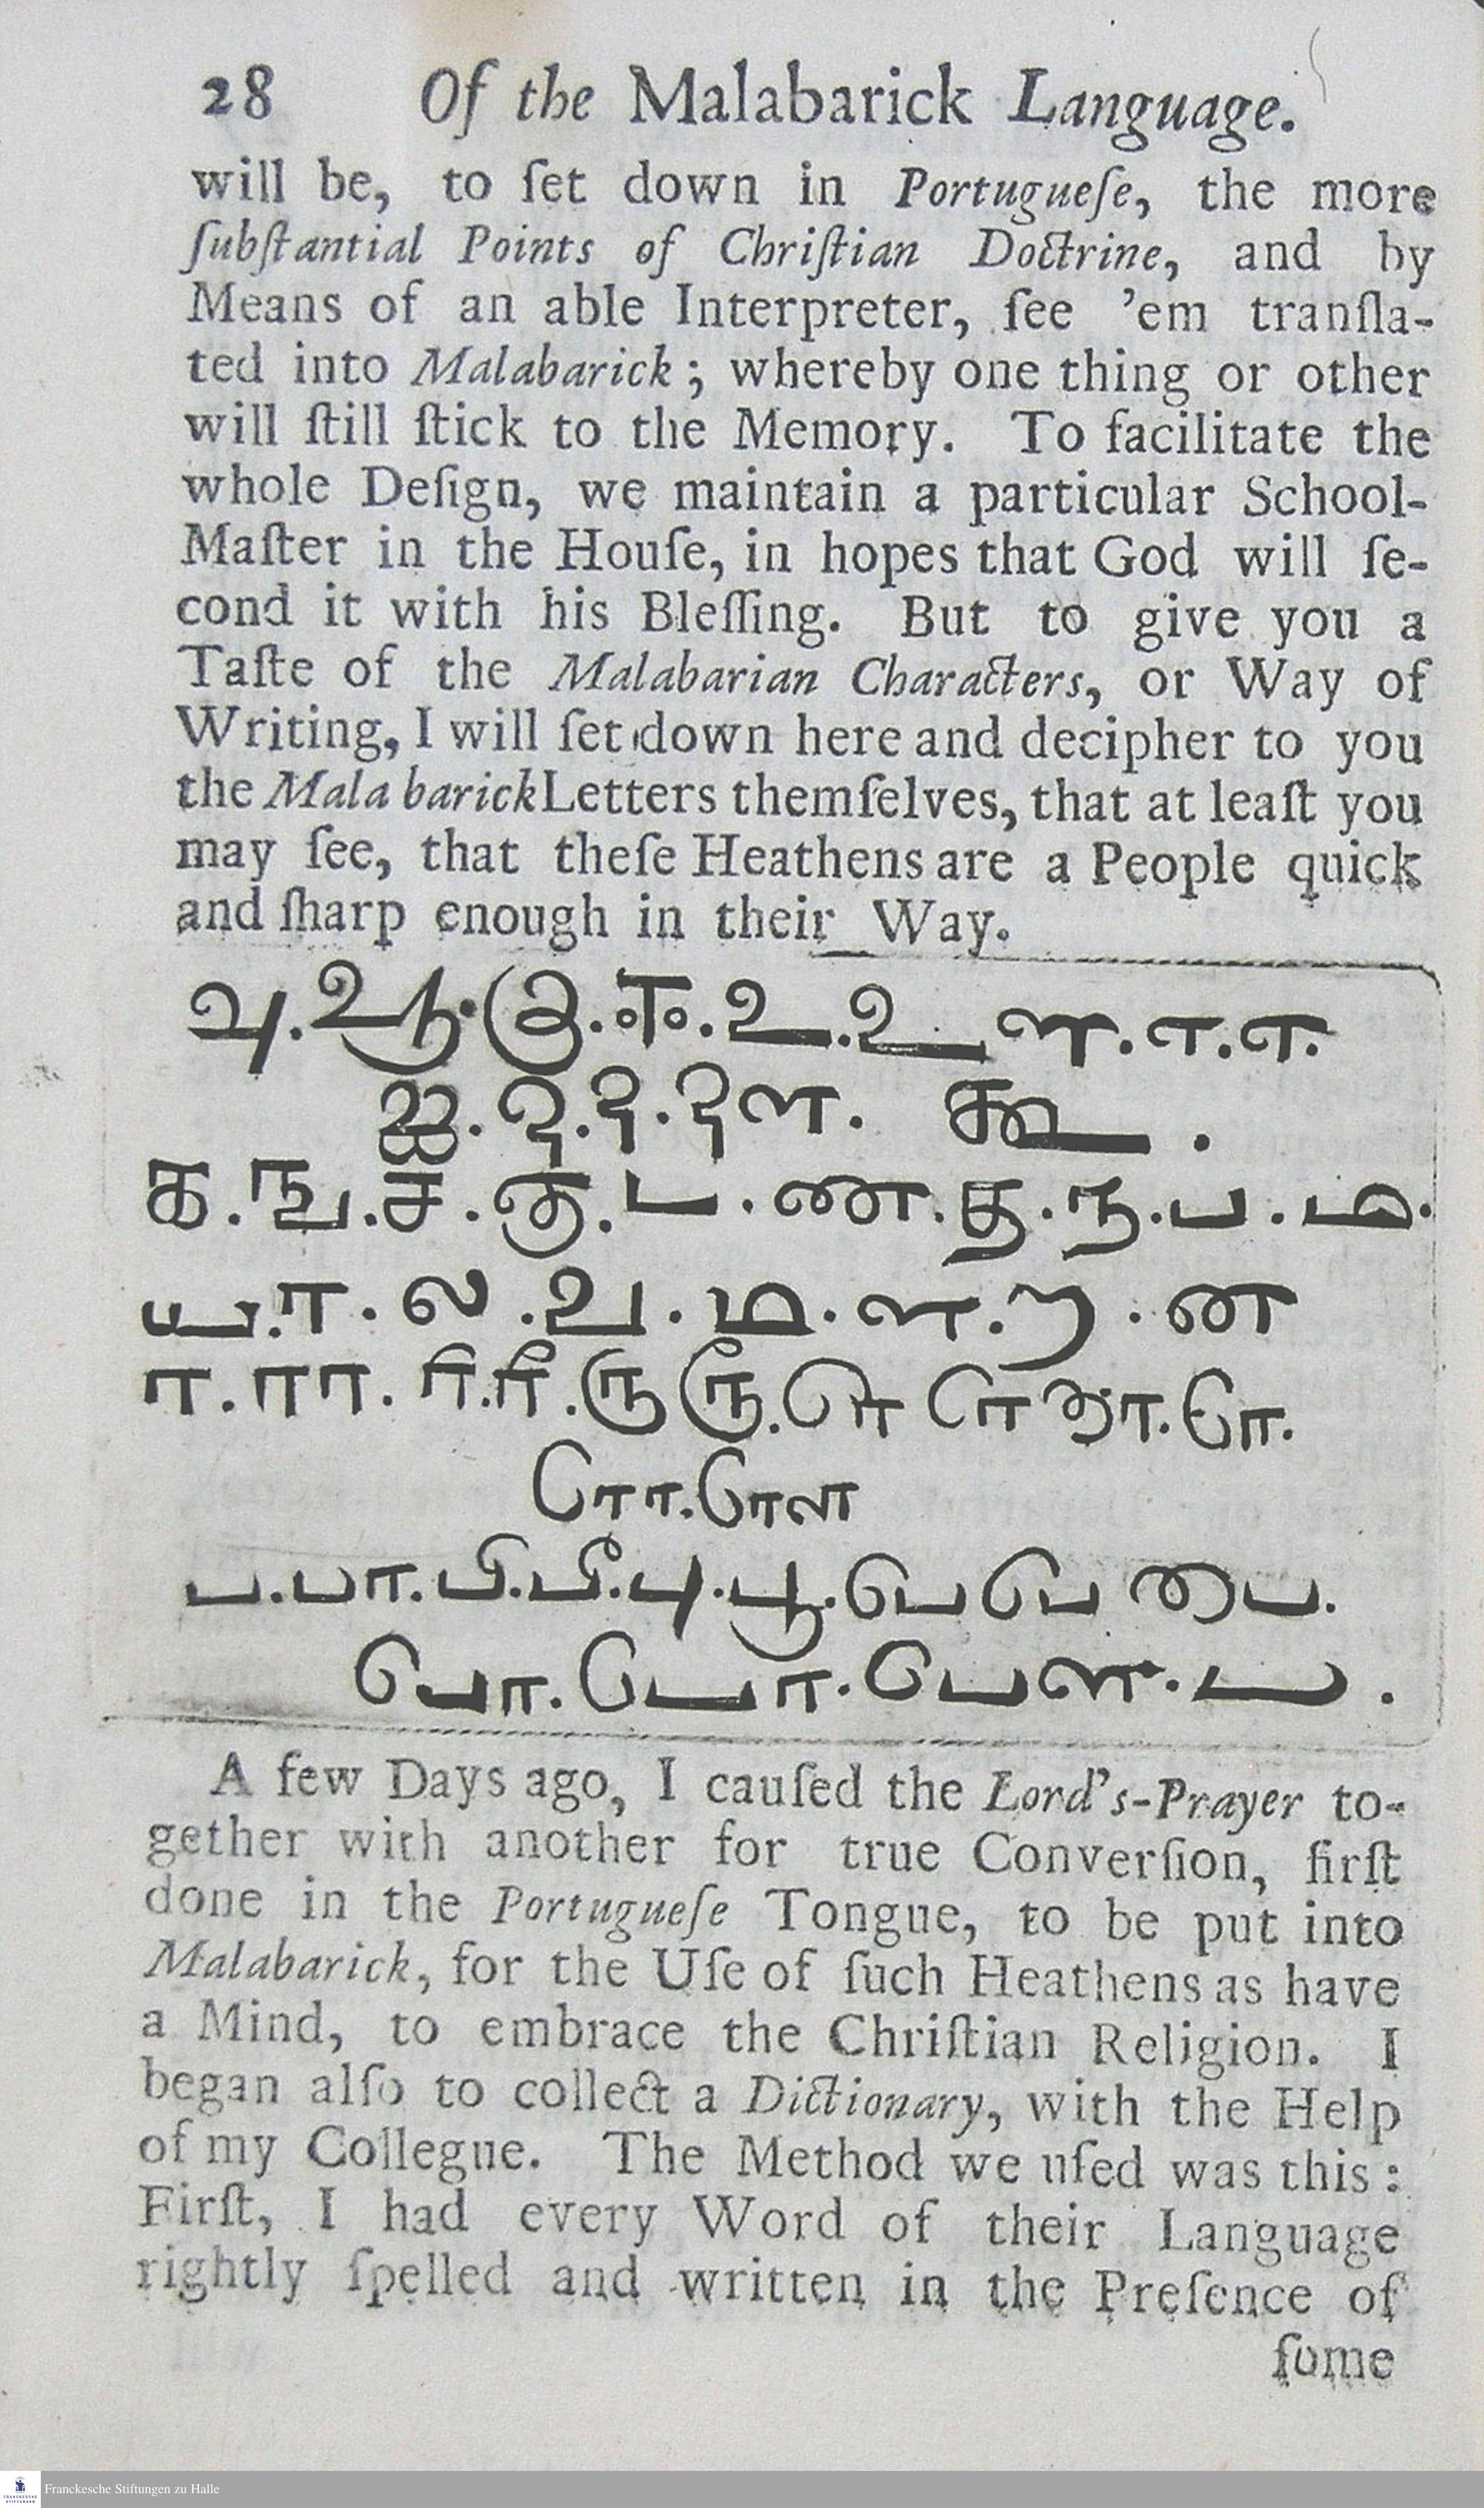 28 Of the Malabarick Language.
will be, to ſet down in Portugueſe, the more
ſubſtantial Points of Chriſtian Doctrine, and by
Means of an able Interpreter, ſee ’em tranſla-
ted into Malabarick; whereby one thing or other
will ſtill ſtick to the Memory. To facilitate the
whole Deſign, we maintain a particular School-
Maſter in the Houſe, in hopes that God will ſe-
cond it with his Bleſſing. But to give you a
Taſte of the Malabarian Characters, or Way of
Writing, I will ſet down here and decipher to you
the Mala barick Letters themſelves, that at leaſt you
may ſee, that theſe Heathens are a People quick
and ſharp enough in their Way.
க . ங . ச . ஞ . ட . ண . த . ந . ப . ம .
ய . ர . ல . வ . ழ . ள . ற . ன
ப . பா . பி . பீ . பு . பூ . பெ பே பை .
பொ . போ . பௌ . ப .
A few Days ago, I cauſed the Lord’s-Prayer to-
gether with another for true Converſion, firſt
done in the Portugueſe Tongue, to be put into
Malabarick, for the Uſe of ſuch Heathens as have
a Mind, to embrace the Chriſtian Religion. I
began alſo to collect a Dictionary, with the Help
of my Collegue. The Method we uſed was this:
Firſt, I had every Word of their Language
rightly ſpelled and written in the Preſence of
ſome
Franckesche Stiftungen zu Halle